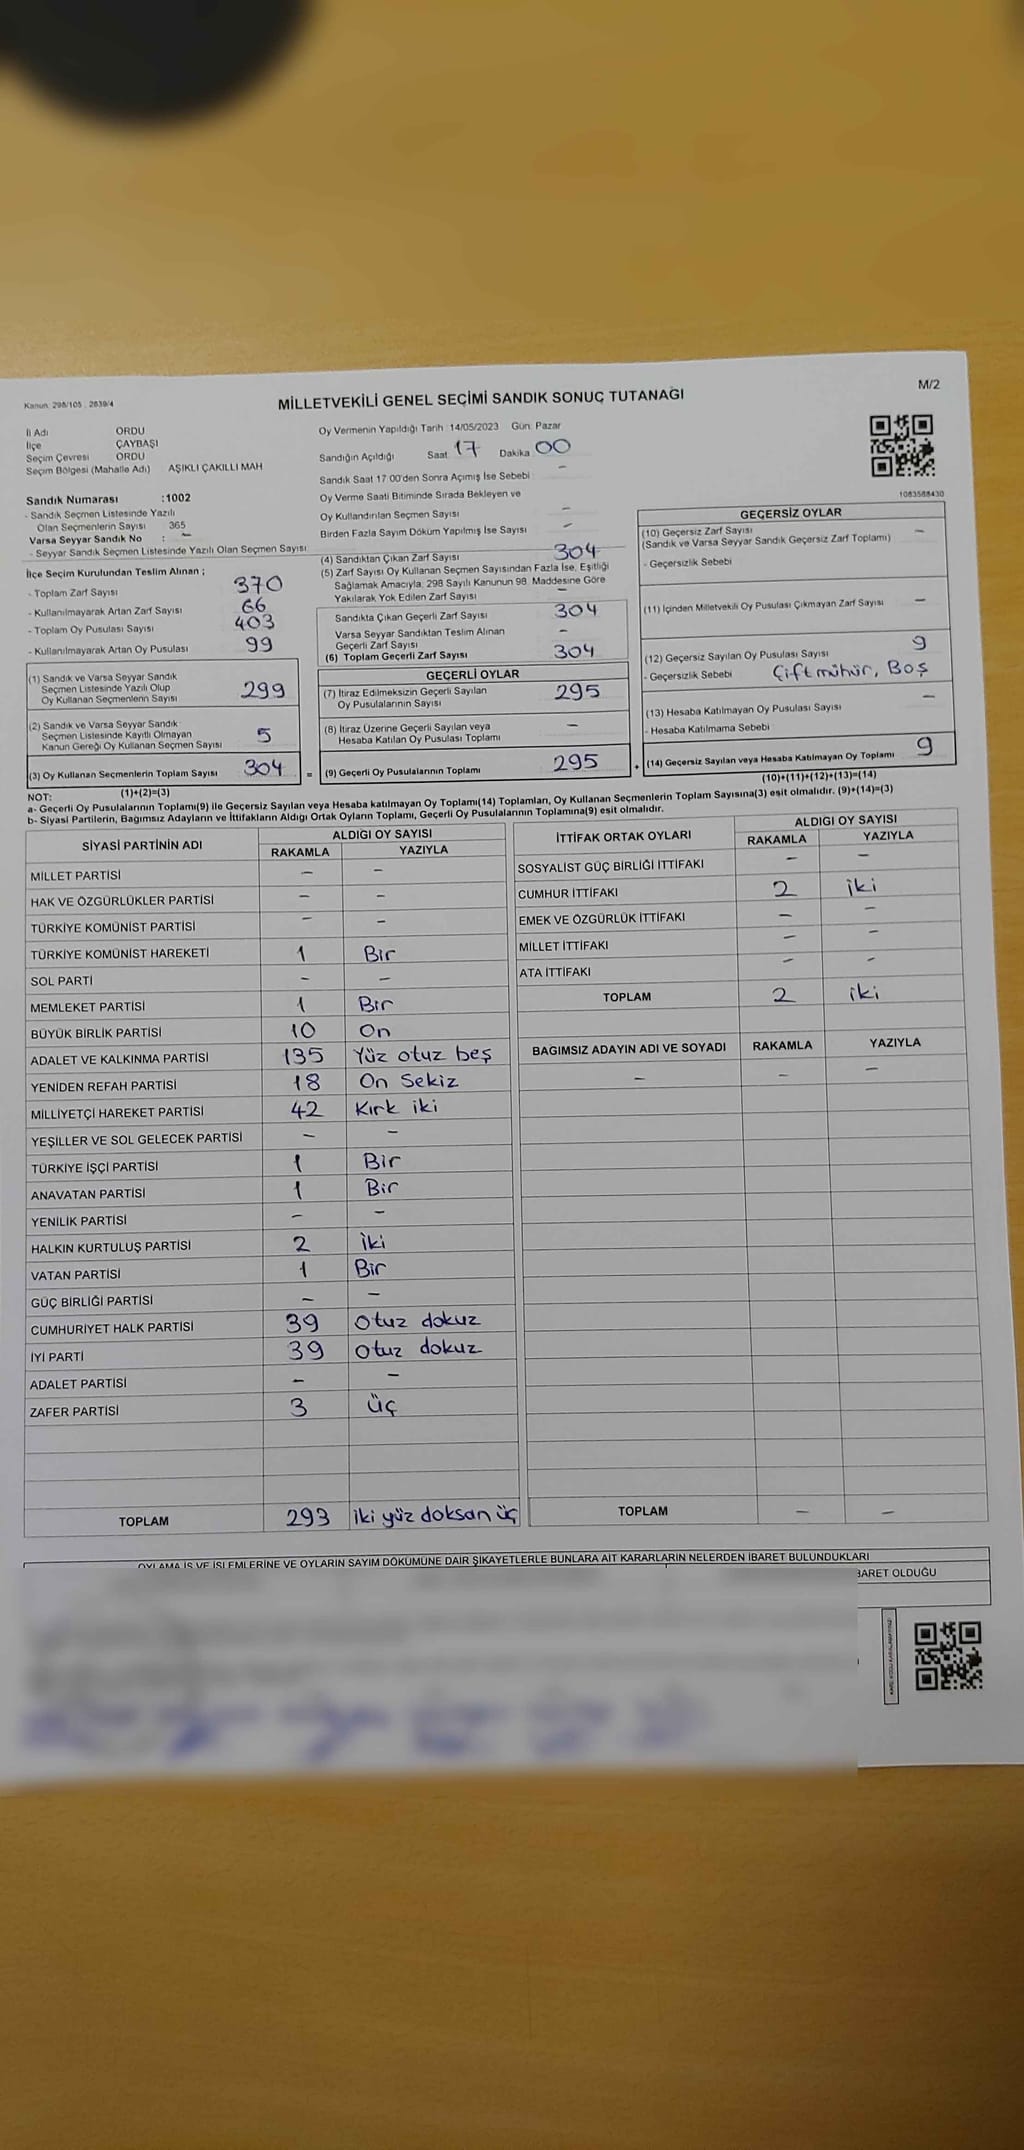 Kanun: 298/105 , 2839/4
MİLLETVEKİLİ GENEL SEÇİMİ SANDIK SONUÇ TUTANAĞI
M/2
İl Adı ORDU
İlçe ÇAYBAŞI
Seçim Çevresi ORDU
Seçim Bölgesi (Mahalle Adı) AŞIKLI ÇAKILLI MAH
Sandık Numarası :1002
- Sandık Seçmen Listesinde Yazılı
Olan Seçmenlerin Sayısı 365
Varsa Seyyar Sandık No : -
- Seyyar Sandık Seçmen Listesinde Yazılı Olan Seçmen Sayısı
İlçe Seçim Kurulundan Teslim Alınan ;
- Toplam Zarf Sayısı 370
- Kullanılmayarak Artan Zarf Sayısı 66
- Toplam Oy Pusulası Sayısı 403
- Kullanılmayarak Artan Oy Pusulası 99
(1) Sandık ve Varsa Seyyar Sandık
Seçmen Listesinde Yazılı Olup
Oy Kullanan Seçmenlerin Sayısı 299
(2) Sandık ve Varsa Seyyar Sandık
Seçmen Listesinde Kayıtlı Olmayan
Kanun Gereği Oy Kullanan Seçmen Sayısı 5
(3) Oy Kullanan Seçmenlerin Toplam Sayısı 304
(1)+(2)=(3)
Oy Vermenin Yapıldığı Tarih 14/05/2023 Gün: Pazar
Sandığın Açıldığı Saat 17 Dakika 00
Sandık Saat 17 00'den Sonra Açımış İse Sebebi -
Oy Verme Saati Bitiminde Sırada Bekleyen ve
Oy Kullandırılan Seçmen Sayısı -
Birden Fazla Sayım Döküm Yapılmış İse Sayısı -
(4) Sandıktan Çıkan Zarf Sayısı 304
(5) Zarf Sayısı Oy Kullanan Seçmen Sayısından Fazla İse, Eşitliği
Sağlamak Amacıyla, 298 Sayılı Kanunun 98. Maddesine Göre
Yakılarak Yok Edilen Zarf Sayısı -
Sandıkta Çıkan Geçerli Zarf Sayısı 304
Varsa Seyyar Sandıktan Teslim Alınan
Geçerli Zarf Sayısı -
(6) Toplam Geçerli Zarf Sayısı 304
GEÇERLİ OYLAR
(7) İtiraz Edilmeksizin Geçerli Sayılan
Oy Pusulalarının Sayısı 295
(8) İtiraz Üzerine Geçerli Sayılan veya
Hesaba Katılan Oy Pusulası Toplamı -
= (9) Geçerli Oy Pusulalarının Toplamı 295 +
1083568430
GEÇERSİZ OYLAR
(10) Geçersiz Zarf Sayısı -
(Sandık ve Varsa Seyyar Sandık Geçersiz Zarf Toplamı)
- Geçersizlik Sebebi
(11) İçinden Milletvekili Oy Pusulası Çıkmayan Zarf Sayısı -
(12) Geçersiz Sayılan Oy Pusulası Sayısı 9
- Geçersizlik Sebebi Çift mühür, Boş
(13) Hesaba Katılmayan Oy Pusulası Sayısı -
- Hesaba Katılmama Sebebi
(14) Geçersiz Sayılan veya Hesaba Katılmayan Oy Toplamı 9
(10)+(11)+(12)+(13)=(14)
NOT:
a- Geçerli Oy Pusulalarının Toplamı(9) ile Geçersiz Sayılan veya Hesaba katılmayan Oy Toplamı(14) Toplamları, Oy Kullanan Seçmenlerin Toplam Sayısına(3) eşit olmalıdır. (9)+(14)=(3)
b- Siyasi Partilerin, Bağımsız Adayların ve İttifakların Aldığı Ortak Oyların Toplamı, Geçerli Oy Pusulalarının Toplamına(9) eşit olmalıdır.
SİYASİ PARTİNİN ADI ALDIĞI OY SAYISI
RAKAMLA YAZIYLA
MİLLET PARTİSİ - -
HAK VE ÖZGÜRLÜKLER PARTİSİ - -
TÜRKİYE KOMÜNİST PARTİSİ - -
TÜRKİYE KOMÜNİST HAREKETİ 1 Bir
SOL PARTİ - -
MEMLEKET PARTİSİ 1 Bir
BÜYÜK BİRLİK PARTİSİ 10 On
ADALET VE KALKINMA PARTİSİ 135 Yüz otuz beş
YENİDEN REFAH PARTİSİ 18 On Sekiz
MİLLİYETÇİ HAREKET PARTİSİ 42 Kırk iki
YEŞİLLER VE SOL GELECEK PARTİSİ - -
TÜRKİYE İŞÇİ PARTİSİ 1 Bir
ANAVATAN PARTİSİ 1 Bir
YENİLİK PARTİSİ - -
HALKIN KURTULUŞ PARTİSİ 2 İki
VATAN PARTİSİ 1 Bir
GÜÇ BİRLİĞİ PARTİSİ - -
CUMHURİYET HALK PARTİSİ 39 Otuz dokuz
İYİ PARTİ 39 Otuz dokuz
ADALET PARTİSİ - -
ZAFER PARTİSİ 3 Üç
TOPLAM 293 İki yüz doksan üç
İTTİFAK ORTAK OYLARI ALDIĞI OY SAYISI
RAKAMLA YAZIYLA
SOSYALİST GÜÇ BİRLİĞİ İTTİFAKI - -
CUMHUR İTTİFAKI 2 İki
EMEK VE ÖZGÜRLÜK İTTİFAKI - -
MİLLET İTTİFAKI - -
ATA İTTİFAKI - -
TOPLAM 2 İki
BAĞIMSIZ ADAYIN ADI VE SOYADI RAKAMLA YAZIYLA
- - -
TOPLAM - -
OYLAMA İŞ VE İŞLEMLERİNE VE OYLARIN SAYIM DÖKÜMÜNE DAİR ŞİKAYETLERLE BUNLARA AİT KARARLARIN NELERDEN İBARET BULUNDUKLARI
BARET OLDUĞU